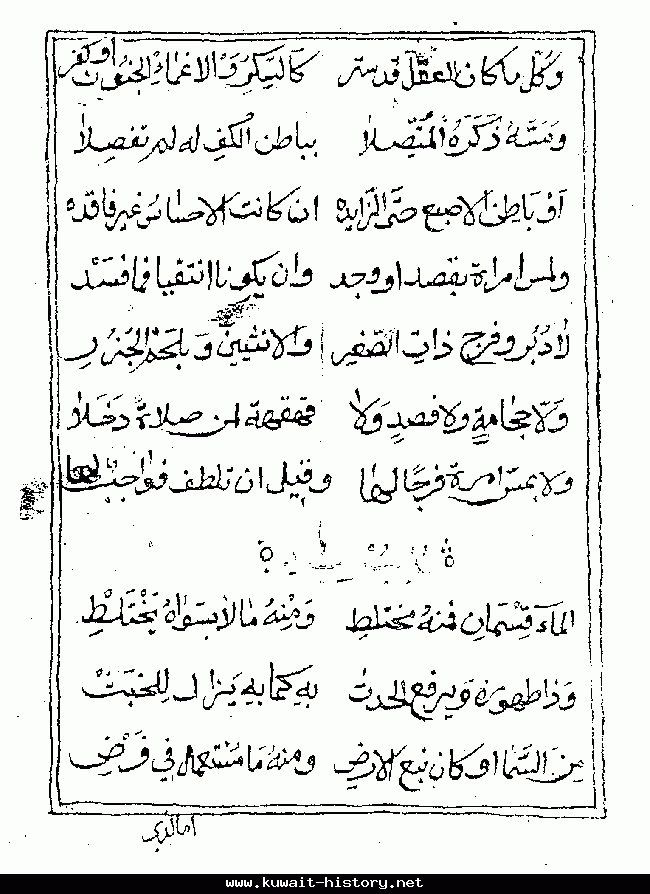 وكل ما كان العقل قد ستر كالسكر والاغماء الجنون او كفر
ومسه ذكره المتصلا بباطن الكف له لم تفصلا
او باطن الاصبع حتى الزايده ان كانت الاحساس غير فاقده
ولمس امراة بقصد او وجد وان يكونا انتفيا فما فسد
لا دبر وفرج ذات الصغر والانثيين وبلحم الجزر
ولا حجامة ولا فصد ولا قهقهة لمن صلاة دخلا
ولا بمس امرة فرجا لها وقيل ان تلطف فواجب لها
الماء قسمان فمنه مختلط ومنه ما لا بسواه يختلط
وذا طهوره ويرفع الحدث به كما به يزال للخبث
من السما او كان نبع الارض ومنه ما مستعمل في فرض
اما الذي
www.kuwait-history.net